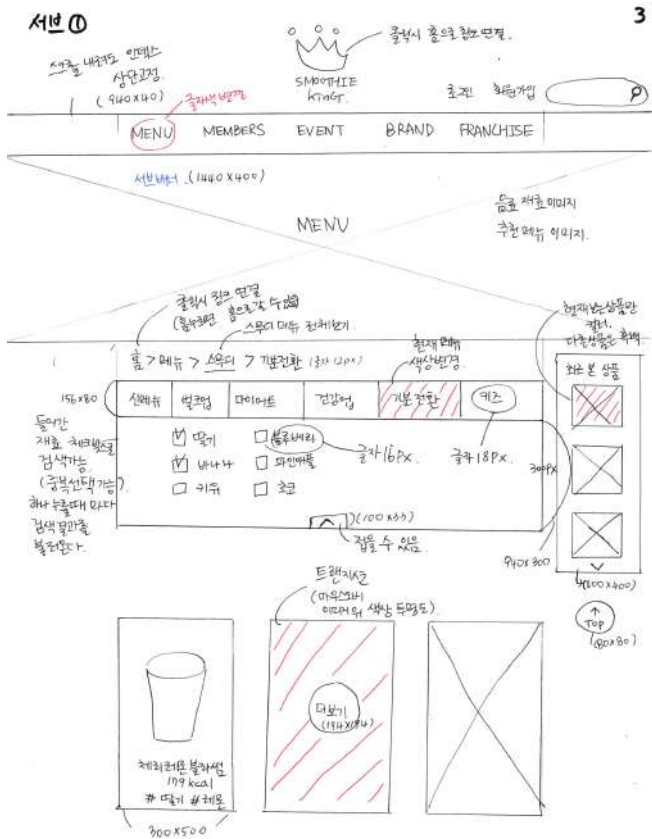 서브 ①
3
스크롤 내려도 인덱스
상단고정.
(940X40)
글자색 변경
클릭시 홈으로 링크 연결.
SMOOTHIE
KING
로그인 회원가입
MENU MEMBERS EVENT BRAND FRANCHISE
서브배너 (1440X400)
MENU
음료 재료 이미지
추천 메뉴 이미지.
클릭시 링크 연결
(홈누르면 홈으로갈 수 있음
스무디 메뉴 전체보기.
홈 > 메뉴 > 스무디 > 기분전환 (글자 12px)
현재 메뉴
색상변경.
현재 보는상품만
컬러,
다른상품은 흑백.
최근 본 상품
156x80
신메뉴 벌크업 다이어트 건강업 기분전환 키즈
들어간
재료 체크박스로
검색가능.
(중복선택 가능)
하나 누를때 마다
검색결과를
불러온다.
딸기 블루베리
바나나 파인애플
키위 초코
글자 16px
글자 18px.
300px
(100x33)
접을 수 있음.
940x300
(100x400)
↑
TOP
(80x80)
트랜지션
(마우스오버시
이미지위 색상 투명도)
더보기
체리레몬블라썸
179 kcal
# 딸기 # 레몬
300x500